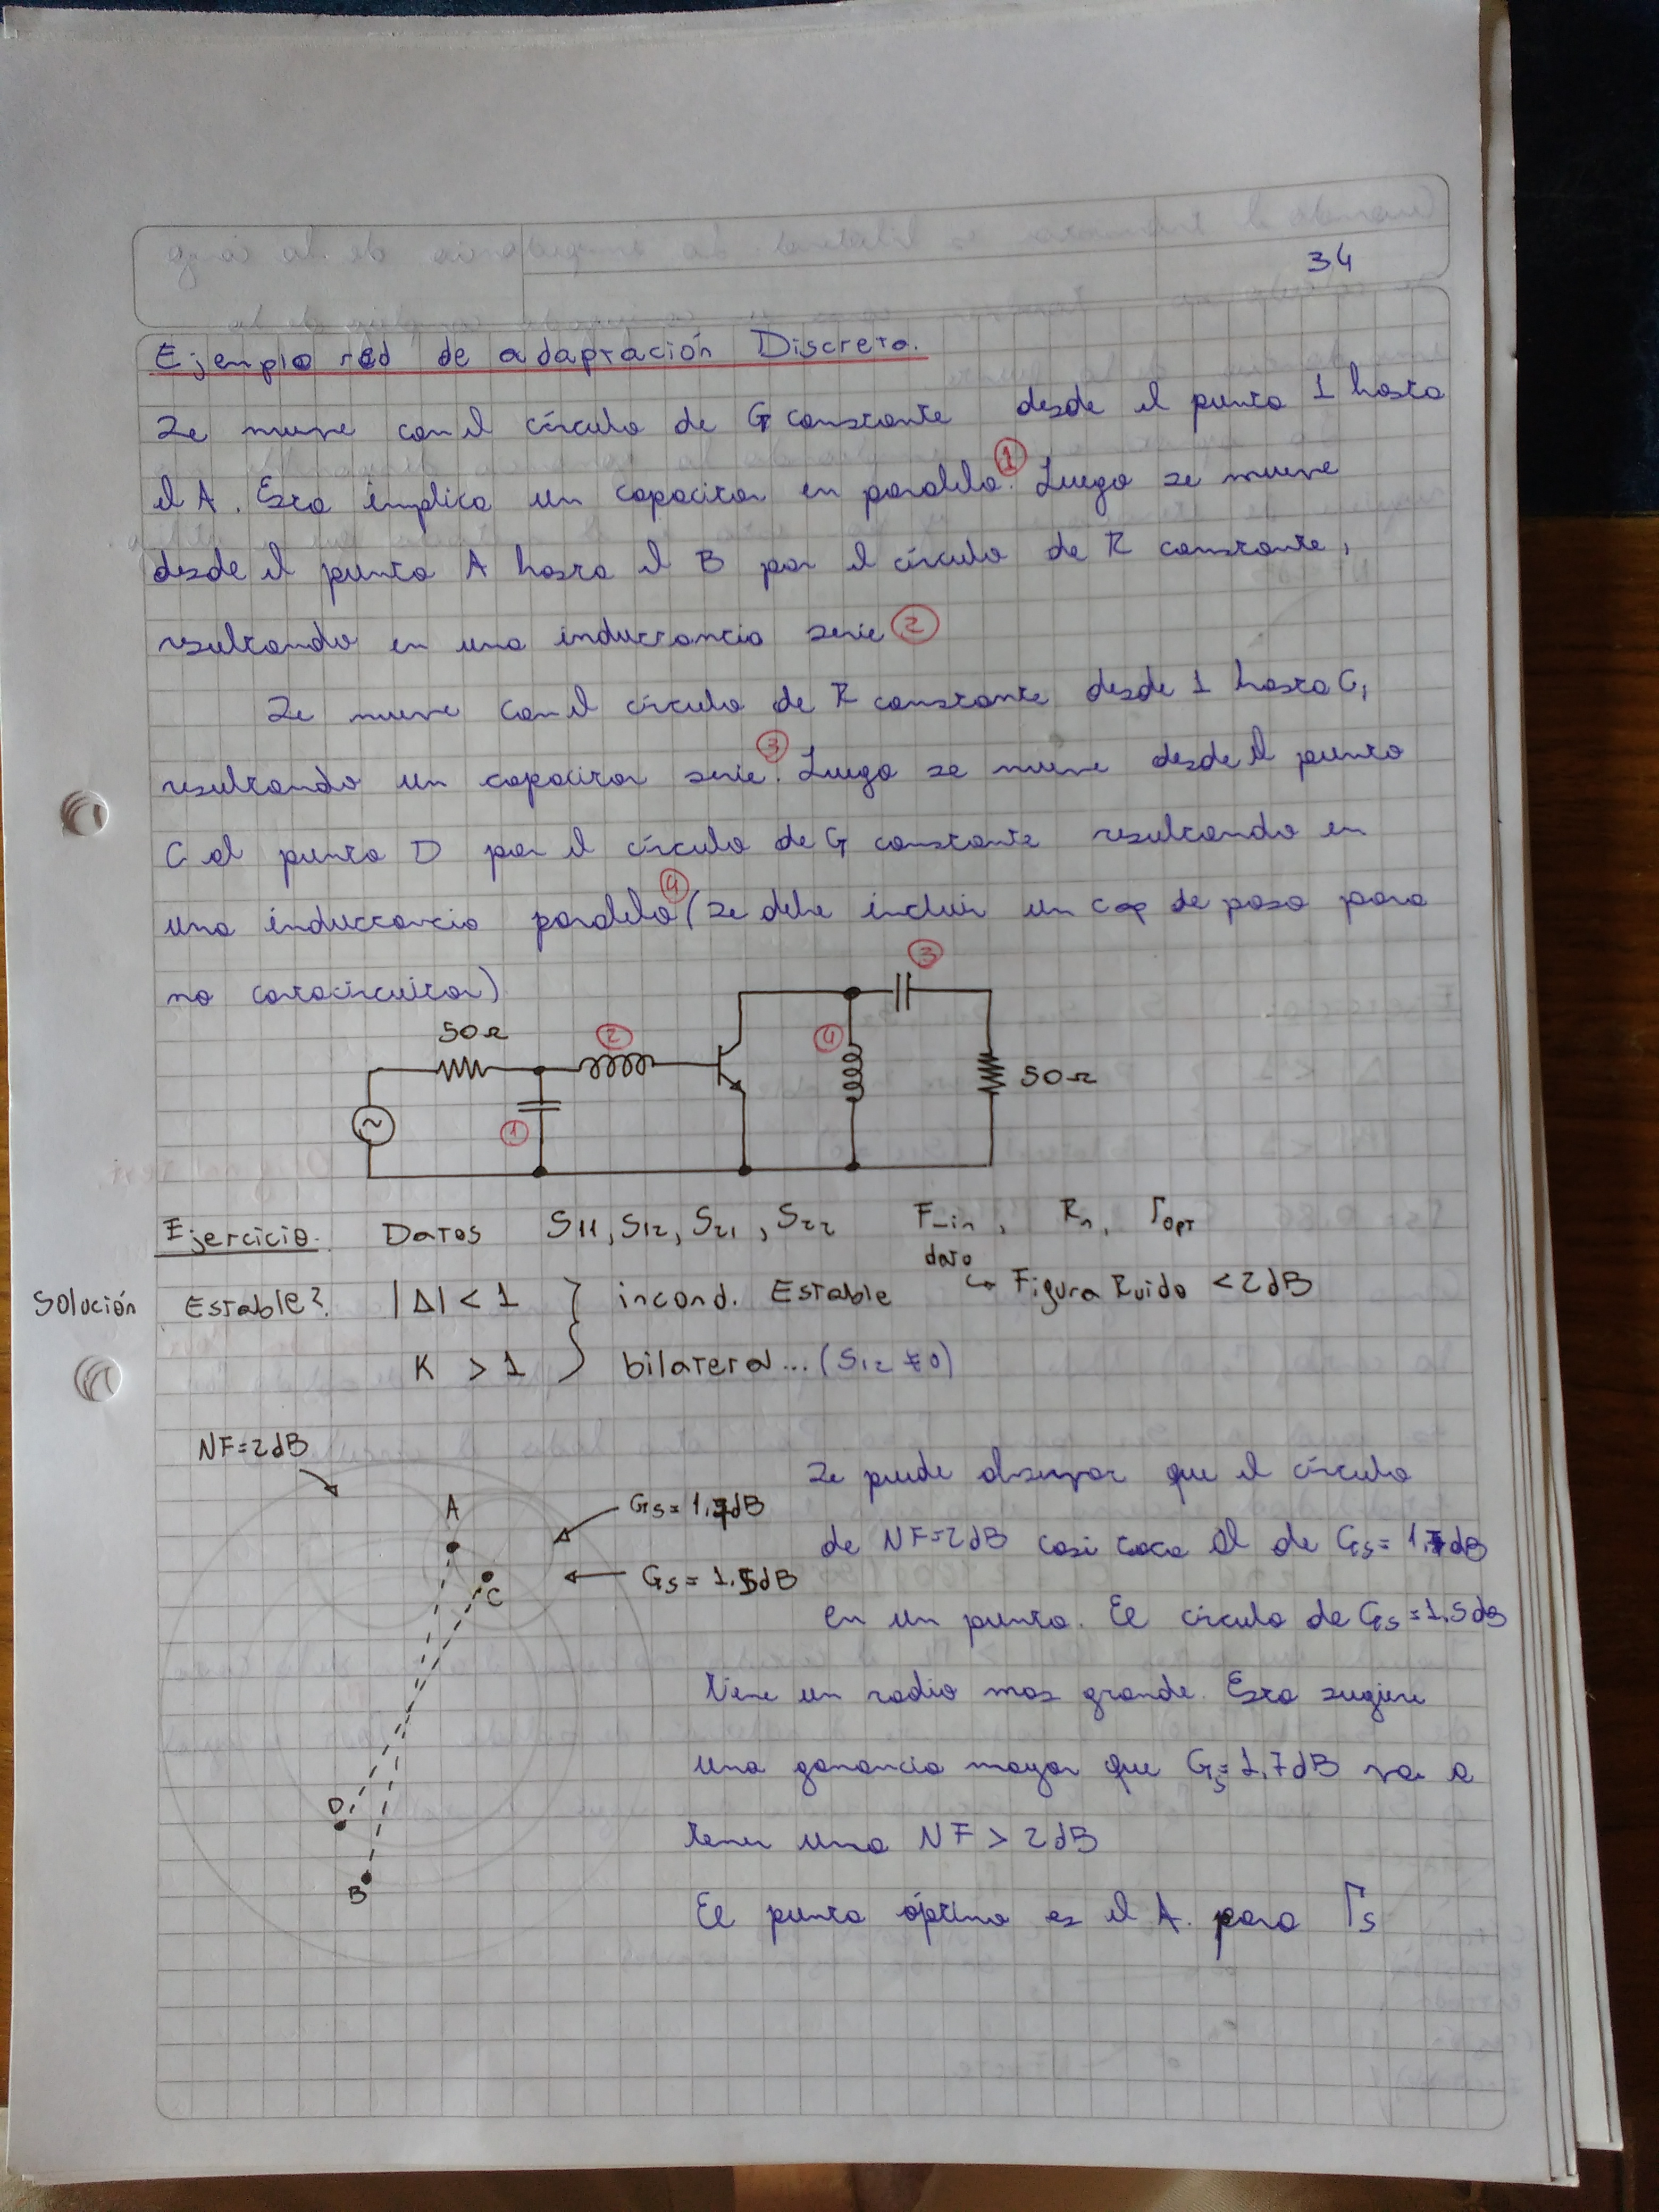 34
Ejemplo red de adaptación Discreta.
Se mueve con el círculo de G constante desde el punto 1 hasta
el A. Esto implica un capacitor en paralelo. ① Luego se mueve
desde el punto A hasta el B por el círculo de R constante,
resultando en una inductancia serie ②
Se mueve con el círculo de R constante desde 1 hasta C,
resultando un capacitor serie. ③ Luego se mueve desde el punto
C al punto D por el círculo de G constante resultando en
una inductancia paralelo ④ (se debe incluir un cap de paso para
no cortocircuitar)
③
50Ω ② ④
50Ω
①
Ejercicio. Datos S11, S12, S21, S22 Fmin, Rn, Γopt
dato
Solución Estable? |Δ| < 1 } incond. Estable ↳ Figura Ruido < 2dB
K > 1 } bilateral... (S12 ≠ 0)
NF=2dB
Se puede observar que el círculo
A Gs = 1.7dB
de NF=2dB casi toca al de Gs = 1.7dB
Gs = 1.5dB
C
en un punto. El círculo de Gs = 1.5dB
tiene un radio mas grande. Esto sugiere
una ganancia mayor que Gs = 1.7dB va a
D
tener una NF > 2dB
B
El punto óptimo es el A. para Γs